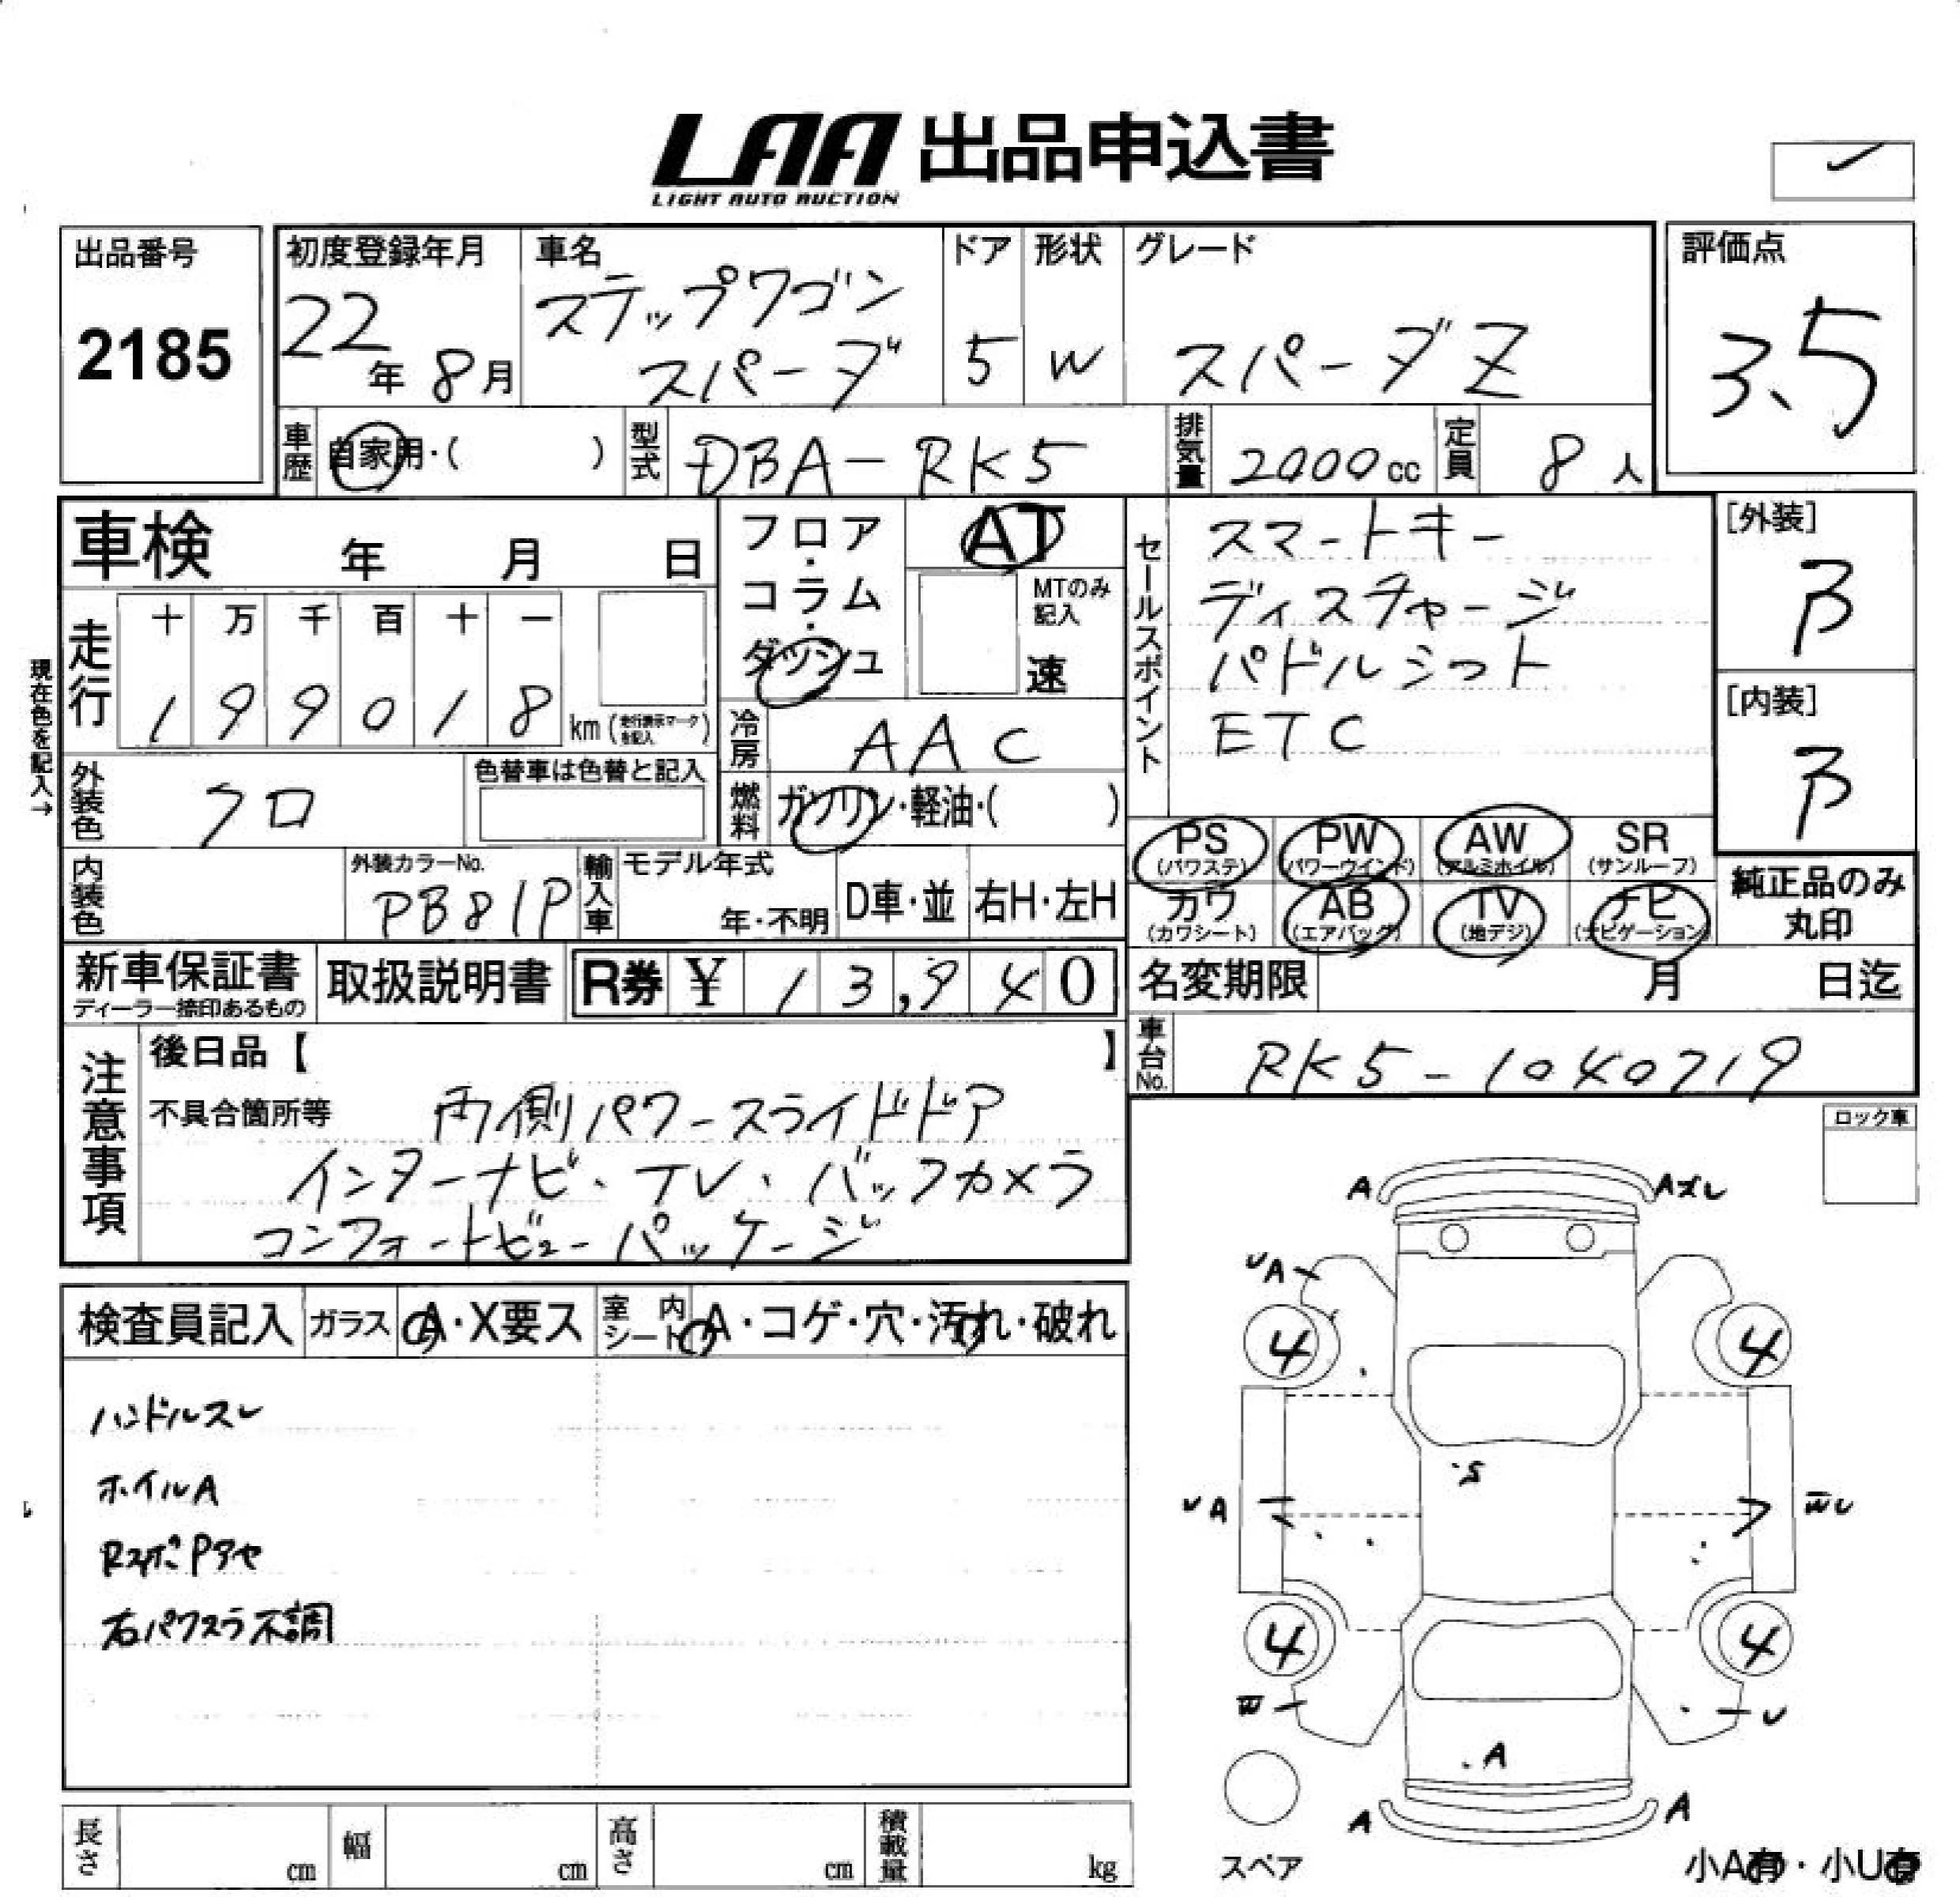 LAA 出品申込書
LIGHT AUTO AUCTION
出品番号
2185
初度登録年月
22年 8月
車名
ステップワゴン
スパーダ
ドア
5
形状
W
グレード
スパーダZ
評価点
3.5
車歴 自家用・( )
型式 DBA-RK5
排気量 2000cc
定員 8人
車検 年 月 日
フロア・コラム・ダッシュ
AT
MTのみ記入
速
セールスポイント
スマートキー
ディスチャージ
パドルシフト
ETC
[外装]
B
[内装]
B
現在色を記入→
走行
十 万 千 百 十 一
1 9 9 0 1 8 km (走行表示マークを記入)
冷房 AAC
外装色 クロ
色替車は色替と記入
燃料 ガソリン・軽油・( )
PS (パワステ)
PW (パワーウインド)
AW (アルミホイル)
SR (サンルーフ)
内装色
外装カラーNo.
PB81P
輸入車
モデル年式
年・不明
D車・並
右H・左H
カワ (カワシート)
AB (エアバッグ)
TV (地デジ)
ナビ (ナビゲーション)
純正品のみ
丸印
新車保証書
ディーラー捺印あるもの
取扱説明書
R券 ¥ 13,940
名変期限 月 日迄
車台No. RK5-1040719
注意事項
後日品【 】
不具合箇所等
両側パワースライドドア
インターナビ、TV、バックカメラ
コンフォートビューパッケージ
ロック車
検査員記入
ガラス A・X要ス
室内シート A・コゲ・穴・汚れ・破れ
ハンドルスレ
ホイルA
右パワスラ不調
A
Aズレ
UA
4
4
S
UA
WU
4
4
W
U
A
A
A
スペア
小A有・小U有
長さ cm
幅 cm
高さ cm
積載量 kg